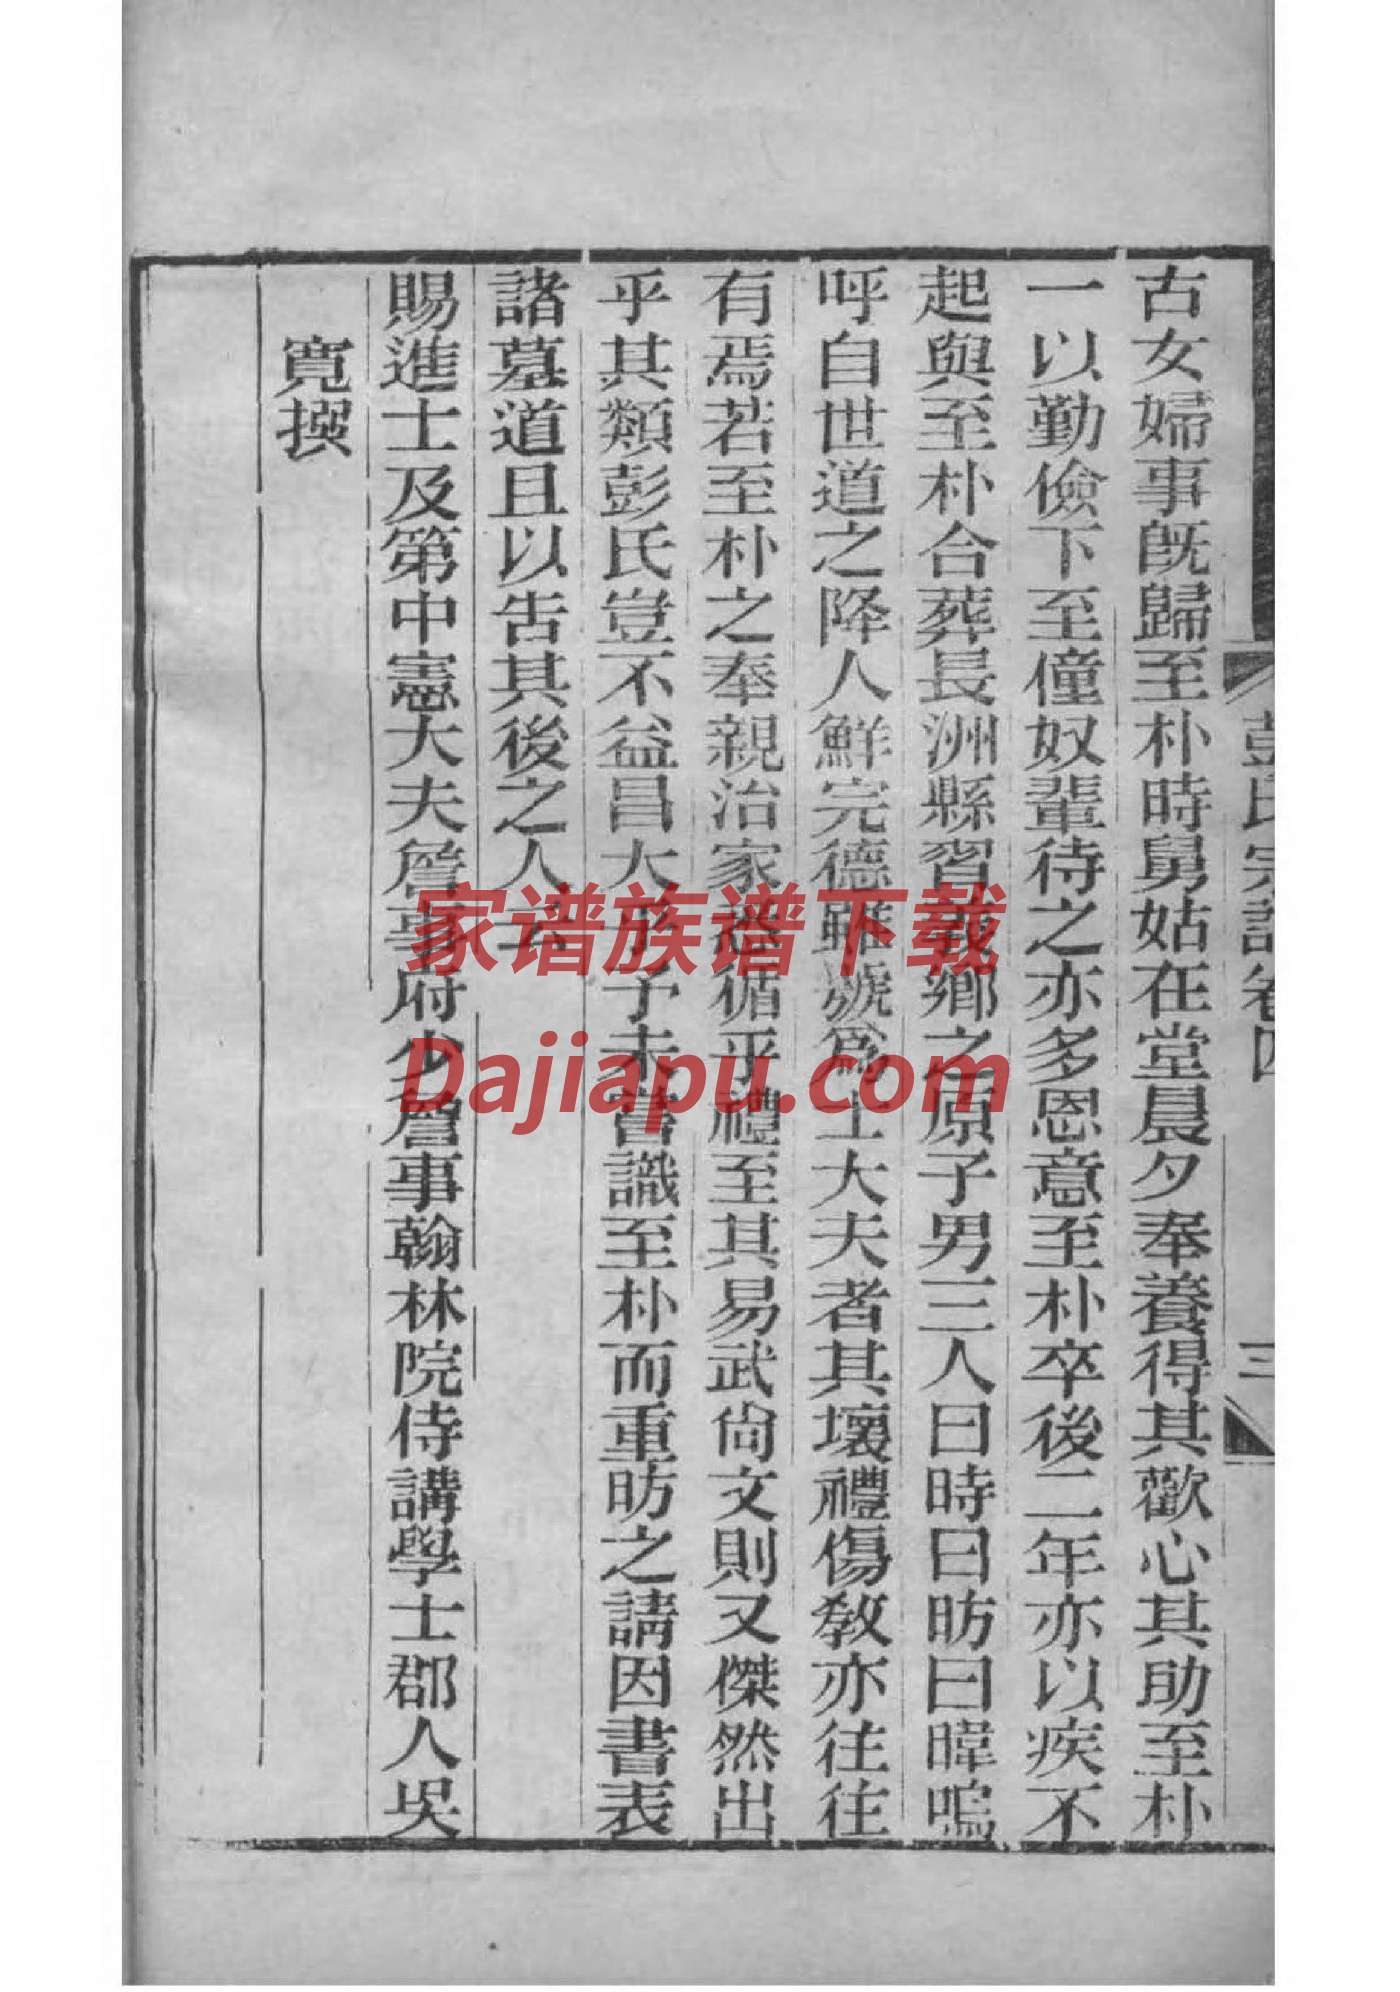 古女婦事旣歸至朴時舅姑在堂晨夕奉養得其歡心其助至朴
一以勤儉下至僮奴輩待之亦多恩意至朴卒後二年亦以疾不
起與至朴合葬長洲縣習義鄉之原子男三人曰時曰昉曰暐嗚
呼自世道之降人鮮完德雖號爲士大夫者其壞禮傷教亦往往
有焉若至朴之奉親治家悉循乎禮至其易武尙文則又傑然出
乎其類彭氏豈不益昌大乎予未嘗識至朴而重昉之請因書表
諸墓道且以告其後之人云
賜進士及第中憲大夫詹事府少詹事翰林院侍講學士郡人吳
寬撰
彭氏宗譜卷四
三
家谱族谱下载
Dajiapu.com